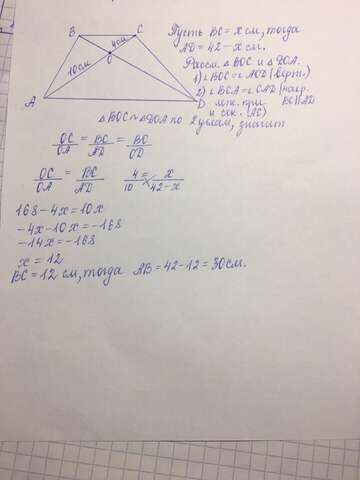 B
C
4см
O
10см
A
D
Пусть BC = x см, тогда
AD = 42 - x см.
Рассм. △BOC и △DOA.
1) ∠BOC = ∠AOD (верт.)
2) ∠BCA = ∠CAD (накр.
леж. при BC||AD
и сек. (AC)
△BOC ~ △DOA по 2 углам, значит
OC/OA = BC/AD = BO/OD
OC/OA = BC/AD 4/10 = x/42-x
168 - 4x = 10x
-4x - 10x = -168
-14x = -168
x = 12
BC = 12 см, тогда AB = 42 - 12 = 30 см.